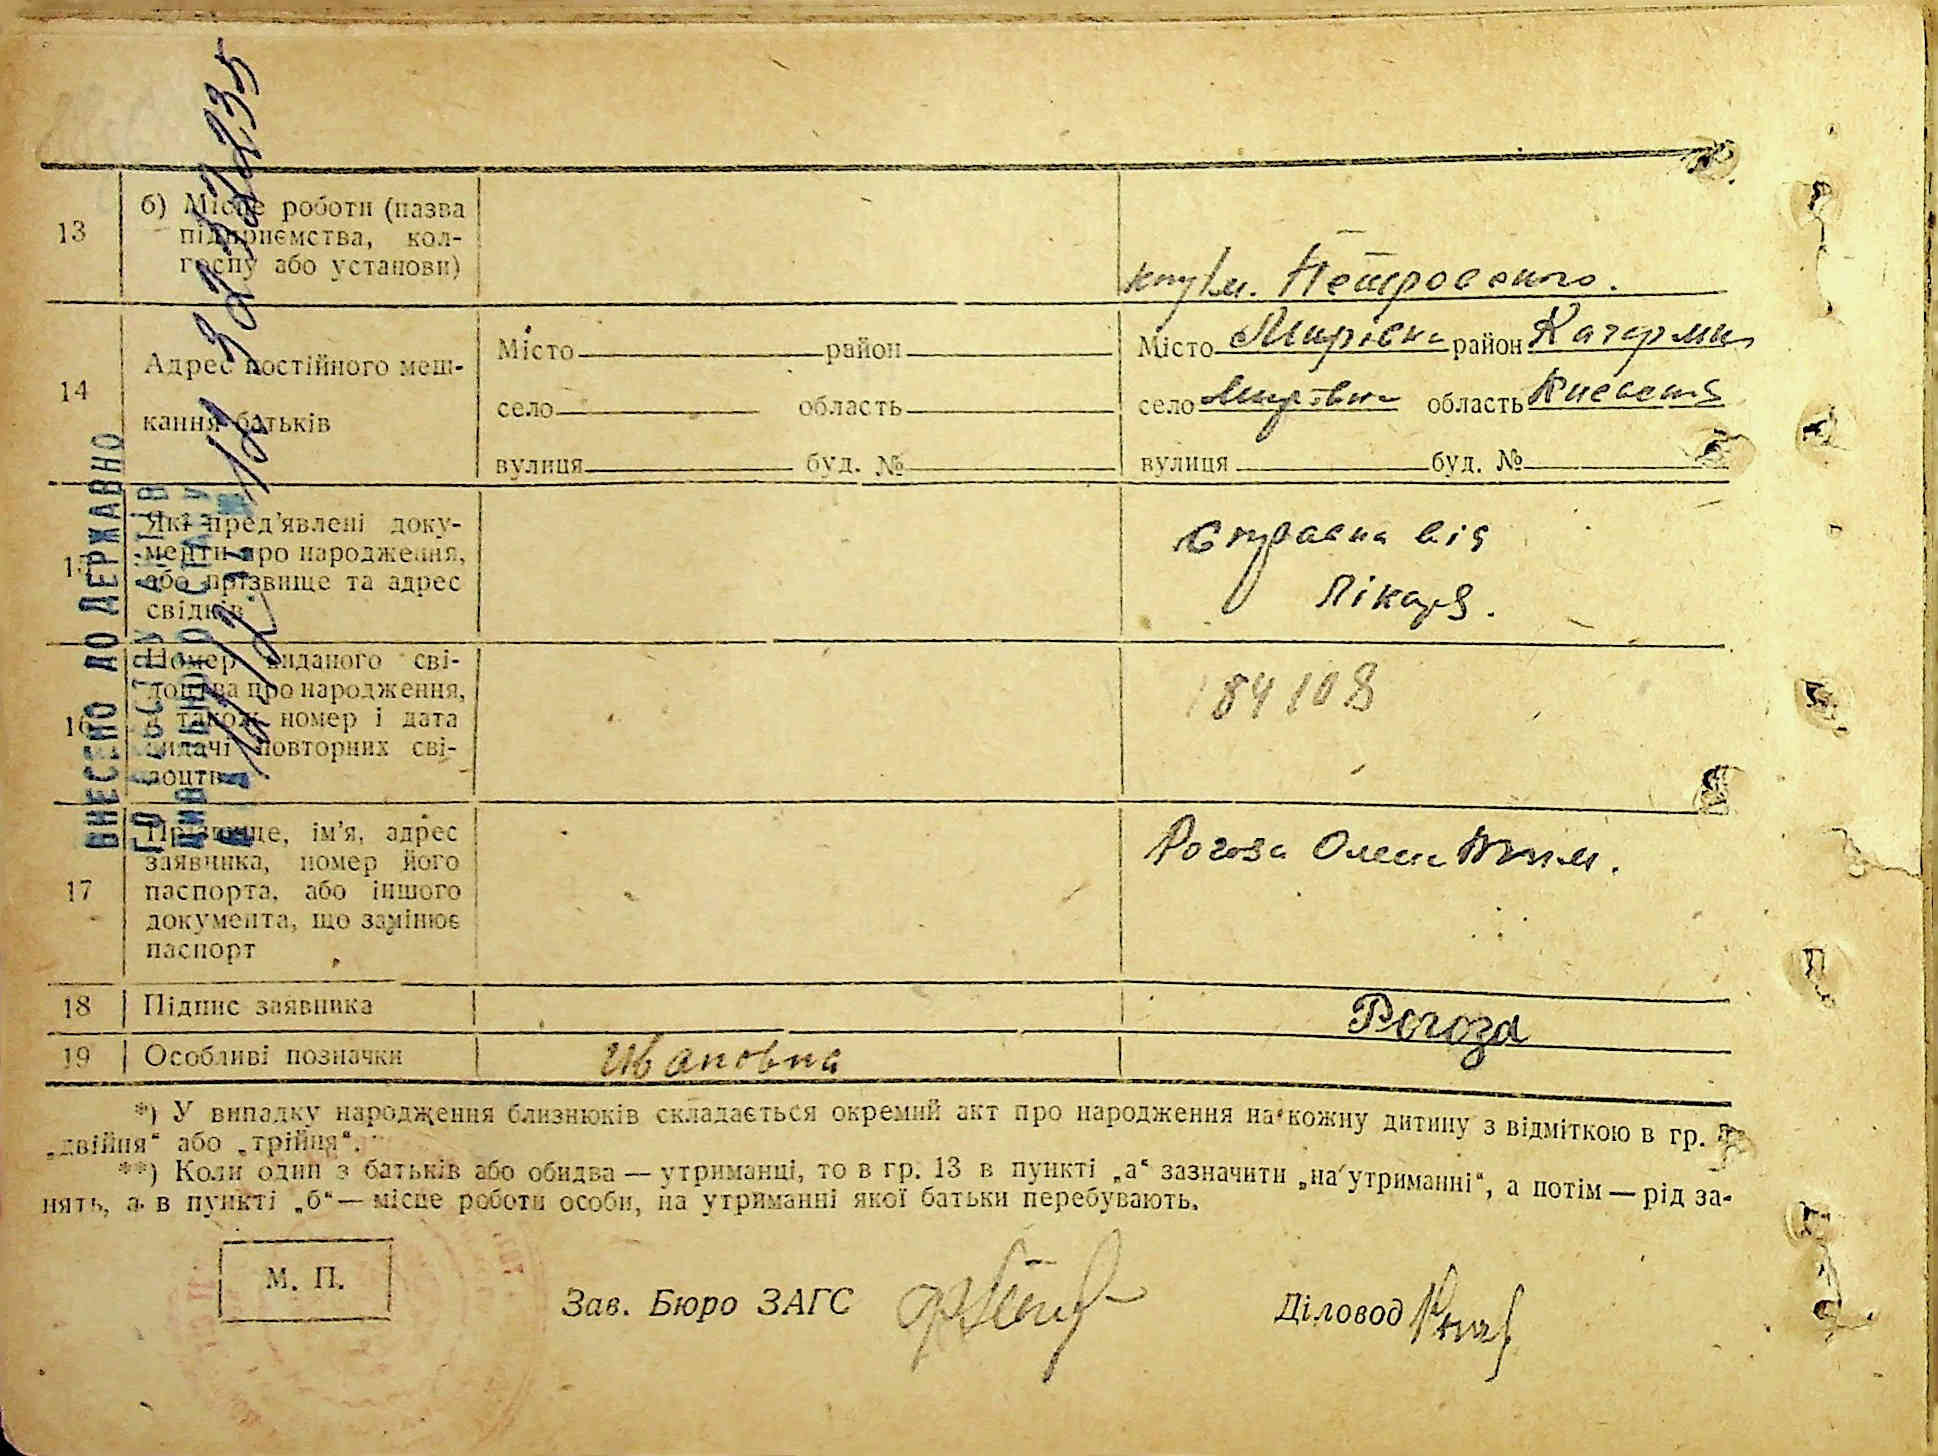 13
б) Місце роботи (назва
підприємства, кол-
госпу або установи)
Петровского.
14
Адрес постійного меш-
кання батьків
Місто район
село область
вулиця буд. №
Місто Мирівка район Кагарлик
село Мирівка область Київська
вулиця буд. №
15
Які пред'явлені доку-
менти про народження,
або прізвище та адрес
свідків
Справка від
лікаря.
16
Номер виданого сві-
доцтва про народження,
а також номер і дата
видачі повторних сві-
доцтв
184108
17
Прізвище, ім'я, адрес
заявника, номер його
паспорта, або іншого
документа, що замінює
паспорт
Рогоза Олекс
18
Підпис заявника
Рогоза
19
Особливі позначки
Ивановна
*) У випадку народження близнюків складається окремий акт про народження на кожну дитину з відміткою в гр.
„двійня“ або „трійня“.
**) Коли один з батьків або обидва — утриманці, то в гр. 13 в пункті „а“ зазначити „на утриманні“, а потім — рід за-
нять, а в пункті „б“ — місце роботи особи, на утриманні якої батьки перебувають.
М. П.
Зав. Бюро ЗАГС
Діловод
ВНЕСЕНО ДО ДЕРЖАВНО
ГО РЕЄСТРУ АКТІВ
ЦИВІЛЬНОГО СТАНУ